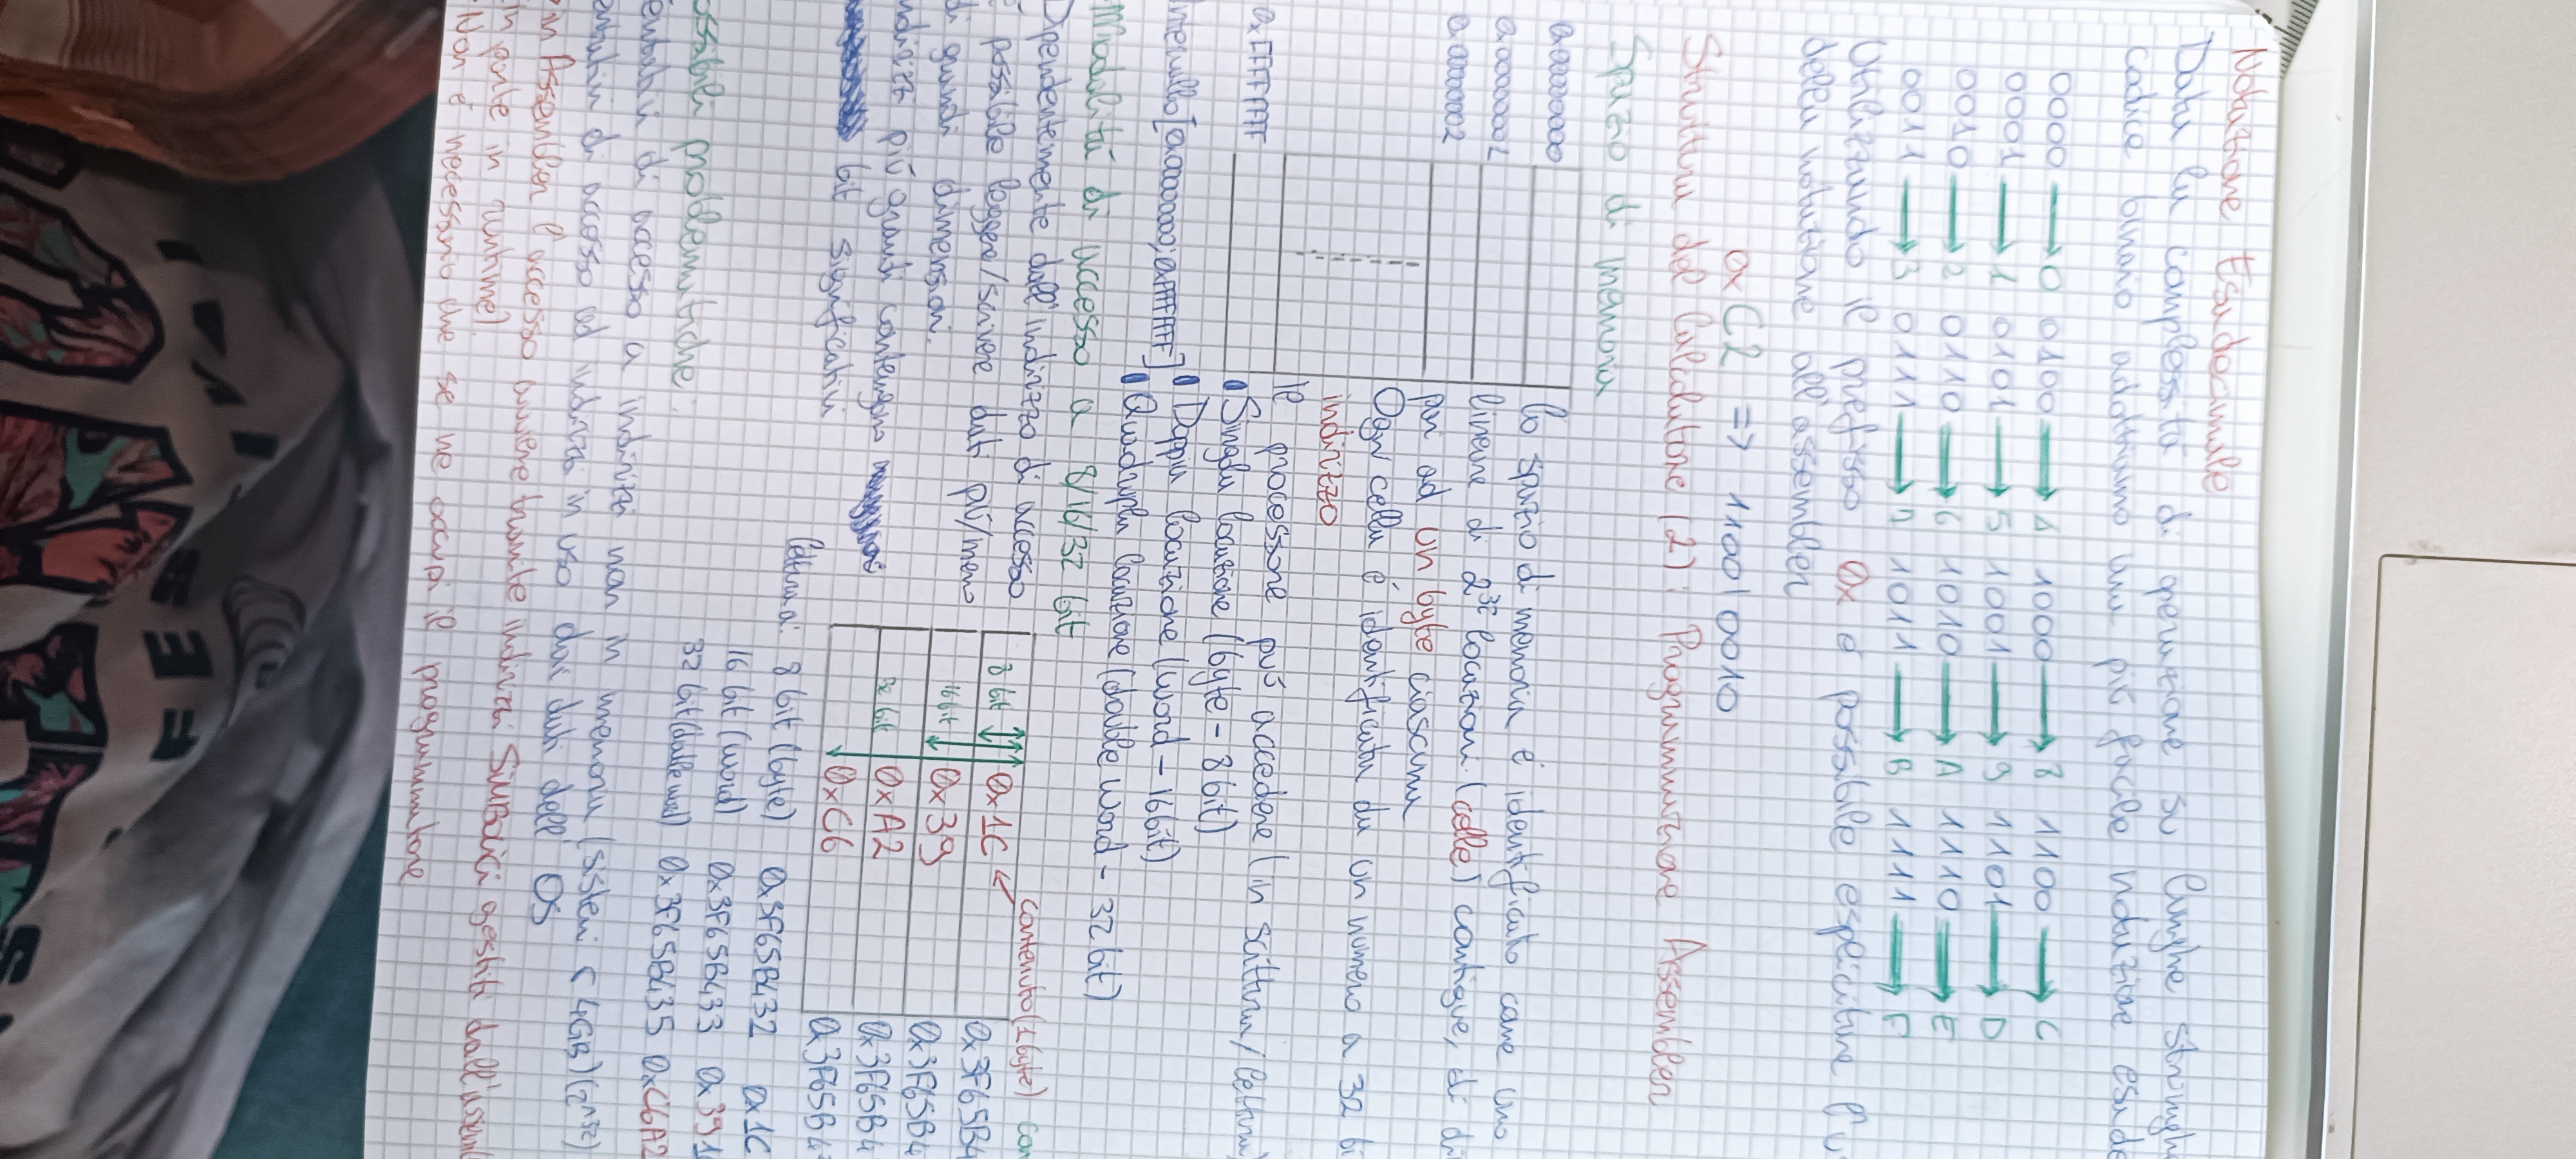 Notazione Esadecimale
Data la complessità di operazione su lunghe stringhe
codice binario adottiamo una più facile notazione esade
0000 → 0 0100 → 4 1000 → 8 1100 → C
0001 → 1 0101 → 5 1001 → 9 1101 → D
0010 → 2 0110 → 6 1010 → A 1110 → E
0011 → 3 0111 → 7 1011 → B 1111 → F
Utilizzando il prefisso 0x è possibile esplicitare l'u
della notazione all'assembler
0xC2 => 1100 | 0010
Struttura del Calcolatore (2): Programmazione Assembler
Spazio di memoria
0x00000000
0x00000001
0x00000002
0xFFFFFFFF
Intervallo [0x00000000; 0xFFFFFFFF]
lo spazio di memoria è identificato come uno
lineare di 2^32 locazioni (celle) contigue, di di
pari ad un byte ciascuna
Ogni cella è identificata da un numero a 32 bi
indirizzo
Il processore può accedere (in scrittura/lettura)
• Singola locazione (byte - 8 bit)
• Doppia locazione (word - 16 bit)
• Quadrupla locazione (double word - 32 bit)
Modalità di accesso a 8/16/32 bit
Dipendentemente dall'indirizzo di accesso
è possibile leggere/scrivere dati più/meno
di grandi dimensioni.
indirizzi più grandi contengono
bit significativi
contenuto (1 byte)
8 bit 0x1C 0x3F65B4
16 bit 0x39 0x3F65B4
32 bit 0xA2 0x3F65B4
0xC6 0x3F65B4
Lettura a: 8 bit (byte) 0x3F65B432 0x1C
16 bit (word) 0x3F65B433 0x391
32 bit (double word) 0x3F65B435 0xC6A2
ossibili problematiche:
entativi di accesso a indirizzi non in memoria (sistemi < 4GB) (2^32)
entativi di accesso ad indirizzi in uso dai dati dell'OS
in Assembler l'accesso avviene tramite indirizzi SIMBOLICI gestiti dall'assembl
in parte in runtime).
Non è necessario che se ne occupi il programmatore